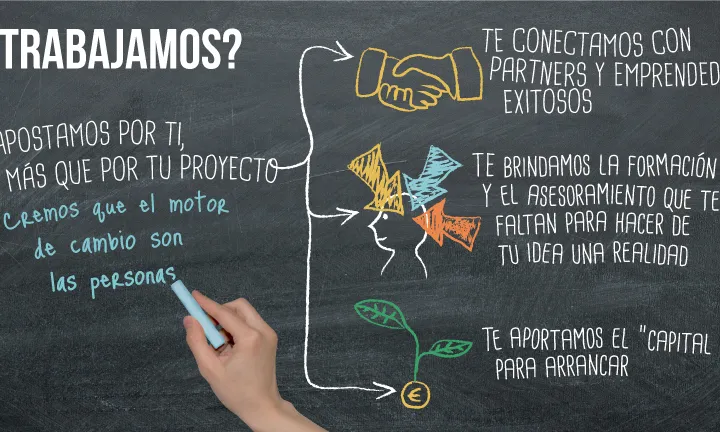 TRABAJAMOS?
APOSTAMOS POR TI,
MÁS QUE POR TU PROYECTO
Cremos que el motor
de cambio son
las personas
TE CONECTAMOS CON
PARTNERS Y EMPRENDED
EXITOSOS
TE BRINDAMOS LA FORMACIÓN
Y EL ASESORAMIENTO QUE TE
FALTAN PARA HACER DE
TU IDEA UNA REALIDAD
TE APORTAMOS EL "CAPITAL
PARA ARRANCAR
€